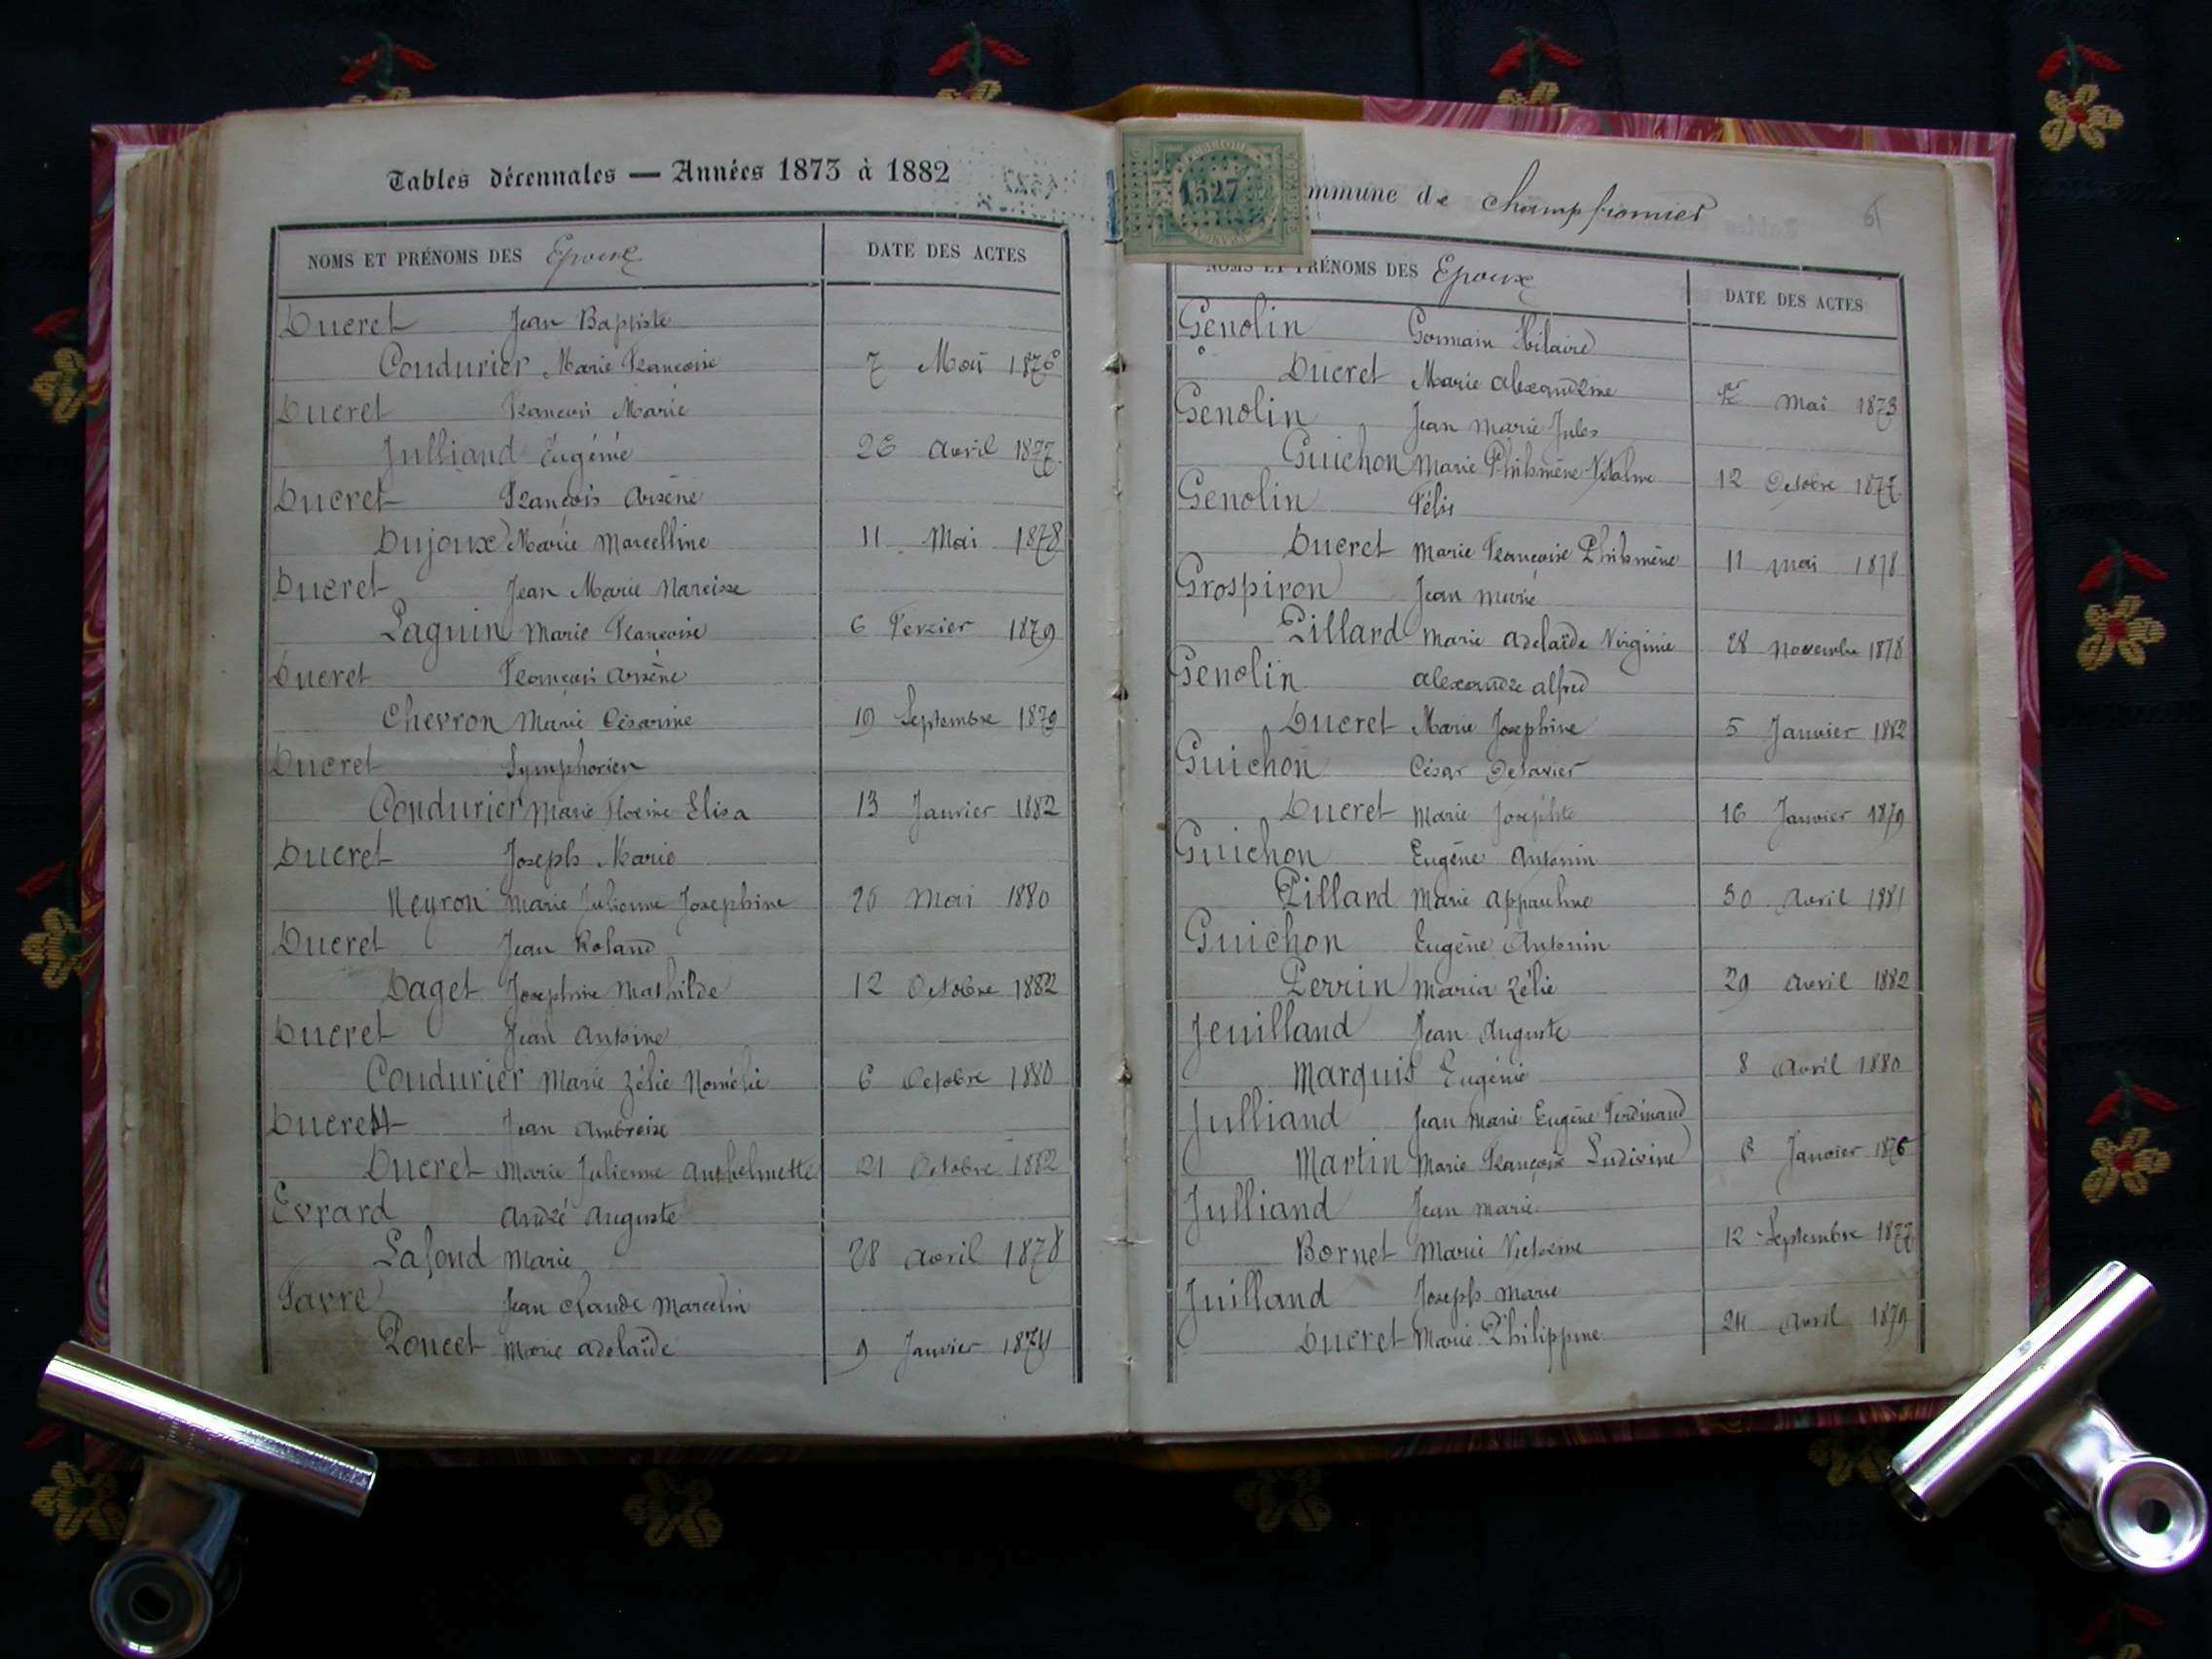 Tables décennales — Années 1873 à 1882
NOMS ET PRÉNOMS DES Epoux DATE DES ACTES
Ducret Jean Baptiste
Coudurier Marie Françoise 7 Mai 1876
Ducret François Marie
Julliand Eugénie 26 Avril 1877
Ducret François Arsène
Dujoux Marie Marcelline 11 Mai 1878
Ducret Jean Marie Narcisse
Paguin Marie Françoise 6 Fevrier 1879
Ducret François Arsène
Chevron Marie Césarine 10 Septembre 1879
Ducret Symphorien
Coudurier Marie Elisa 13 Janvier 1882
Ducret Joseph Marie
Neyron Marie Julienne Josephine 26 Mai 1880
Ducret Jean Roland
Daget Josephine Mathilde 12 Octobre 1882
Ducret Jean Antoine
Coudurier Marie Zélie Nomélie 6 Octobre 1880
Ducret Jean Ambroise
Ducret Marie Julienne Anthelmette 21 Octobre 1882
Evrard André Auguste
Lafond Marie 28 Avril 1878
Favre Jean Claude Marcelin
Poncet Marie Adelaïde 9 Janvier 1874
1527
mmune de Champfromier
61
NOMS ET PRÉNOMS DES Epoux DATE DES ACTES
Genolin Germain Hilaire
Ducret Marie Alexandrine 1er Mai 1873
Genolin Jean Marie Jules
Guichon Marie Philomène Vitaline 12 Octobre 1877
Genolin Félix
Ducret Marie Françoise Philomène 11 Mai 1878
Grospiron Jean Marie
Pillard Marie Adelaïde Virginie 28 Novembre 1878
Genolin Alexandre Alfred
Ducret Marie Josephine 5 Janvier 1882
Guichon César Octavier
Ducret Marie Joséphte 16 Janvier 1879
Guichon Eugène Antonin
Pillard Marie Appauline 30 Avril 1881
Guichon Eugène Antonin
Perrin Maria Zélie 29 Avril 1882
Jeuilland Jean Auguste
Marquis Eugénie 8 Avril 1880
Julliand Jean Marie Eugène Ferdinand
Martin Marie Françoise Ludivine Janvier 1876
Julliand Jean Marie
Bornet Marie Victorine 12 Septembre 1877
Juilland Joseph Marie
Ducret Marie Philippine 24 Avril 1879